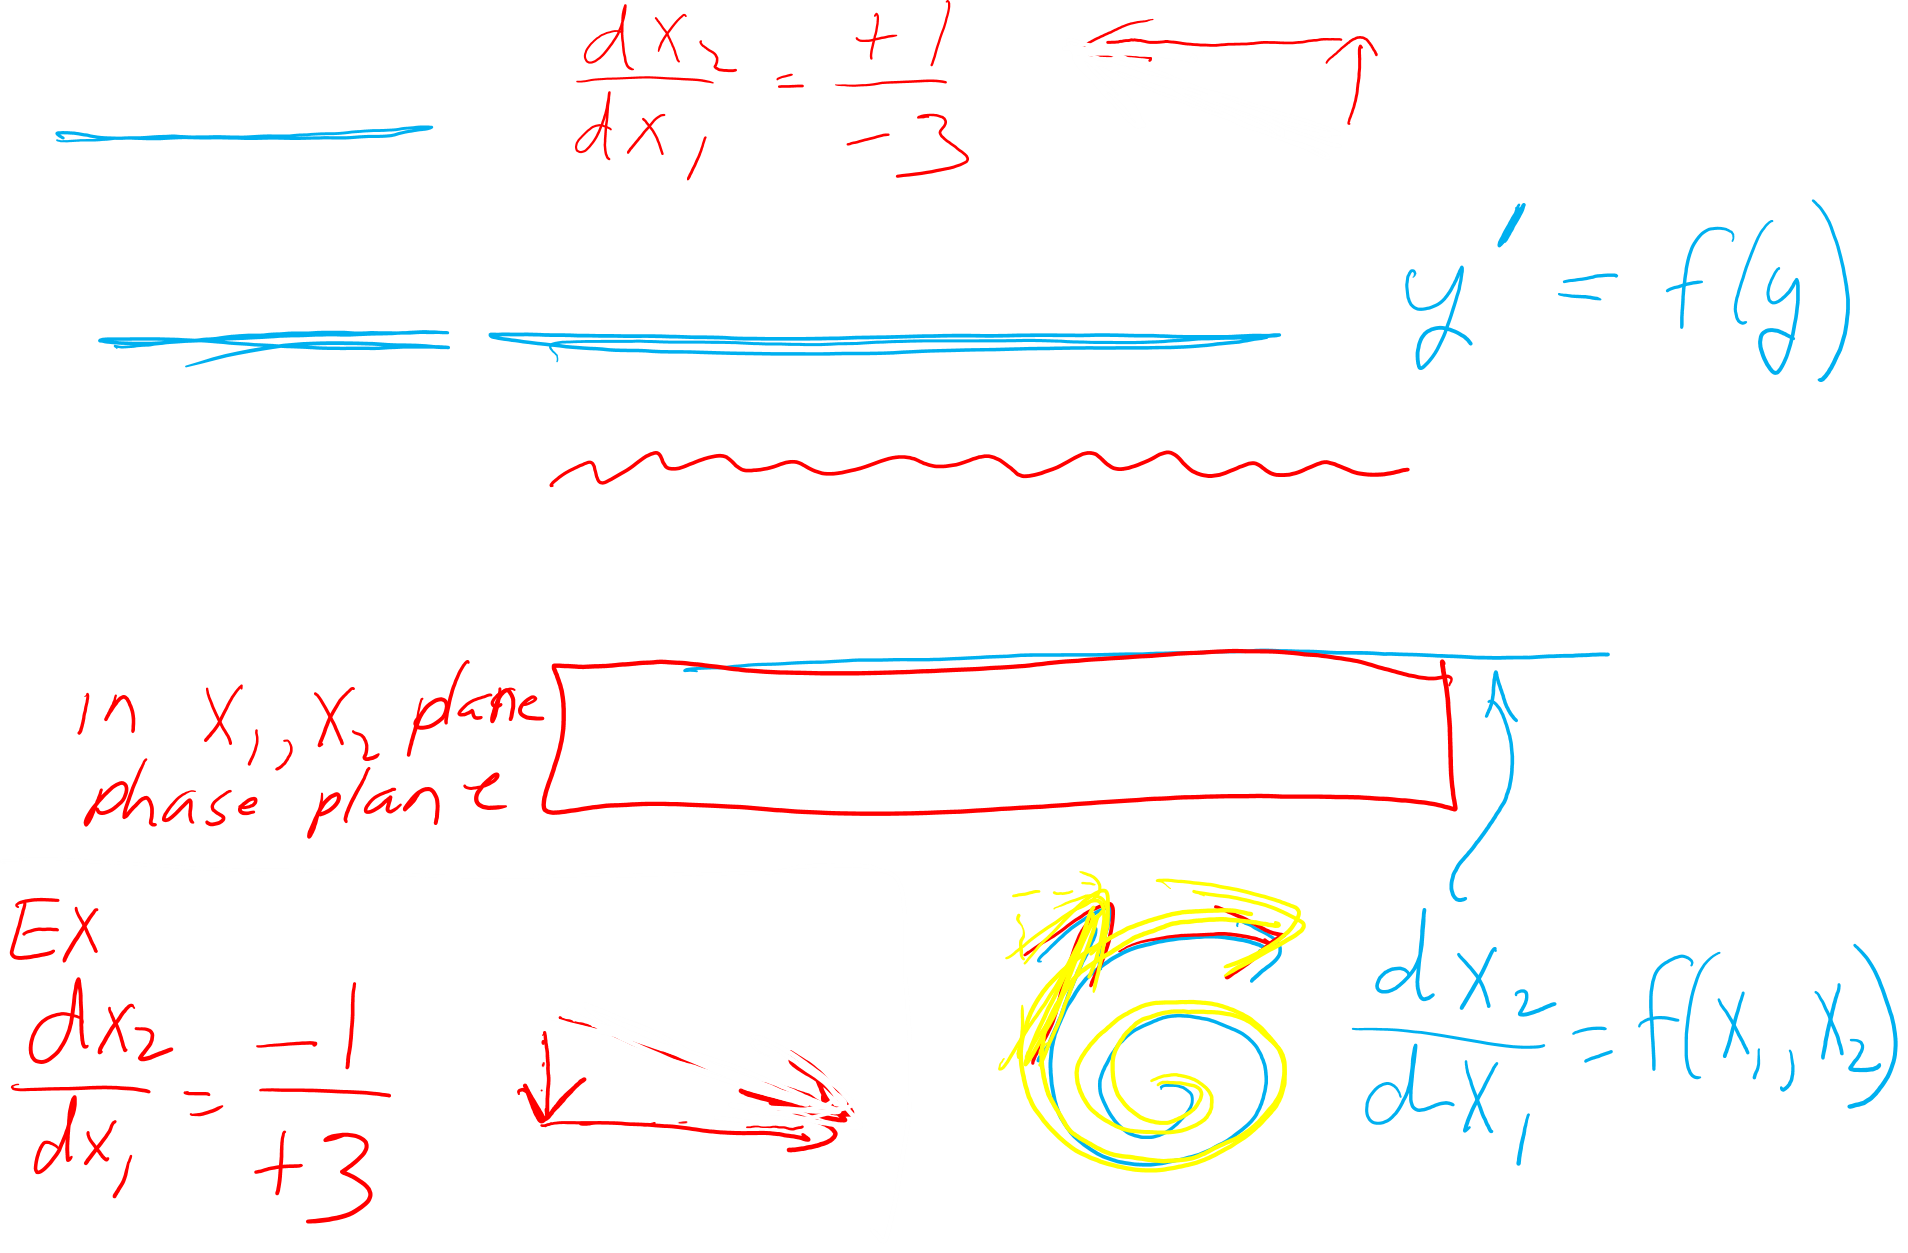 dx₂/dx₁ = +1/-3
y' = f(y)
in x₁, x₂ plane
phase plane
EX
dx₂/dx₁ = -1/+3
dx₂/dx₁ = f(x₁, x₂)